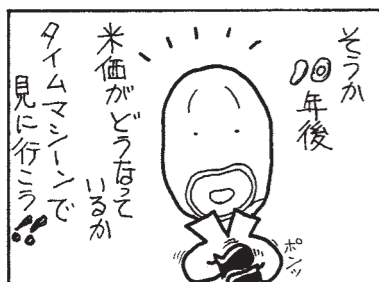 そうか
〇〇年後
米価が
どうなって
いるか
タイムマシーンで
見に行こう!!
ポンッ